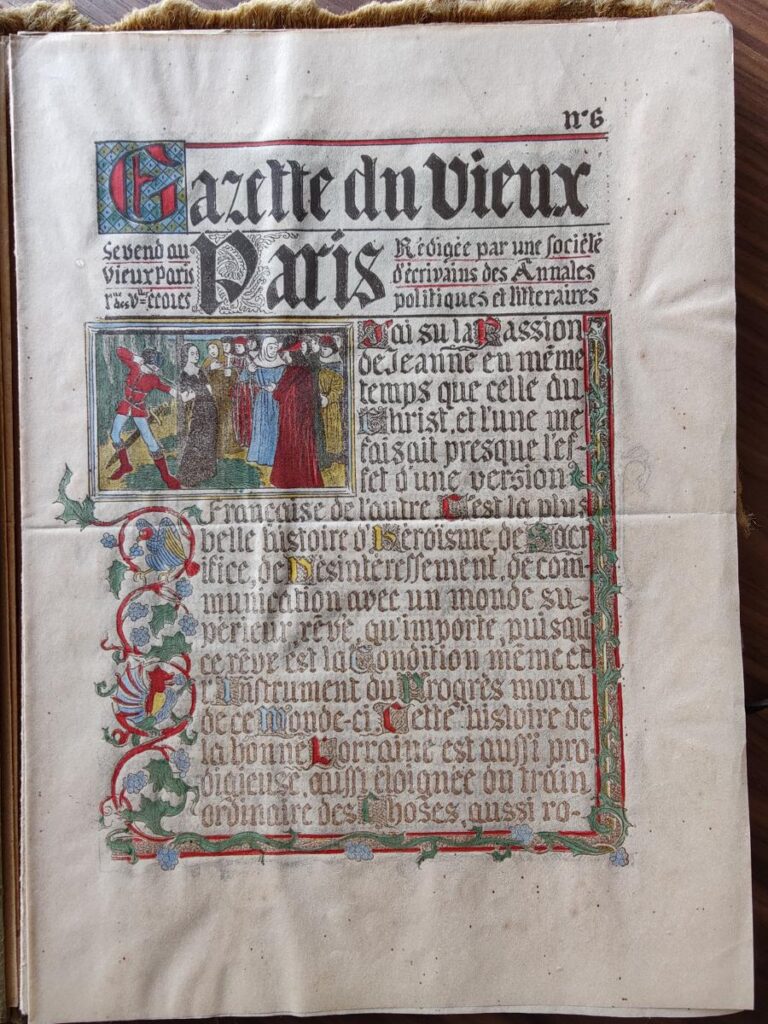 nº 6
Gazette du Vieux
Paris
Se vend au
Vieux Paris
rue des Vlles écoles
Rédigée par une société
d'écrivains des Annales
politiques et littéraires
J'ai su la Passion
de Jeanne en même
temps que celle du
Christ, et l'une me
faisait presque l'ef-
fet d'une version
Française de l'autre C'est la plus
belle histoire d'Héroïsme, de Sacr
ifice, de Désintéressement, de com-
munication avec un monde su-
périeur, rêve, qu'importe, puisqu
ce rêve est la Condition même et
l'Instrument du Progrès moral
de ce Monde-ci. Cette histoire de
la bonne Lorraine est aussi pro
digieuse, aussi éloignée du train
ordinaire des Choses, aussi ro-